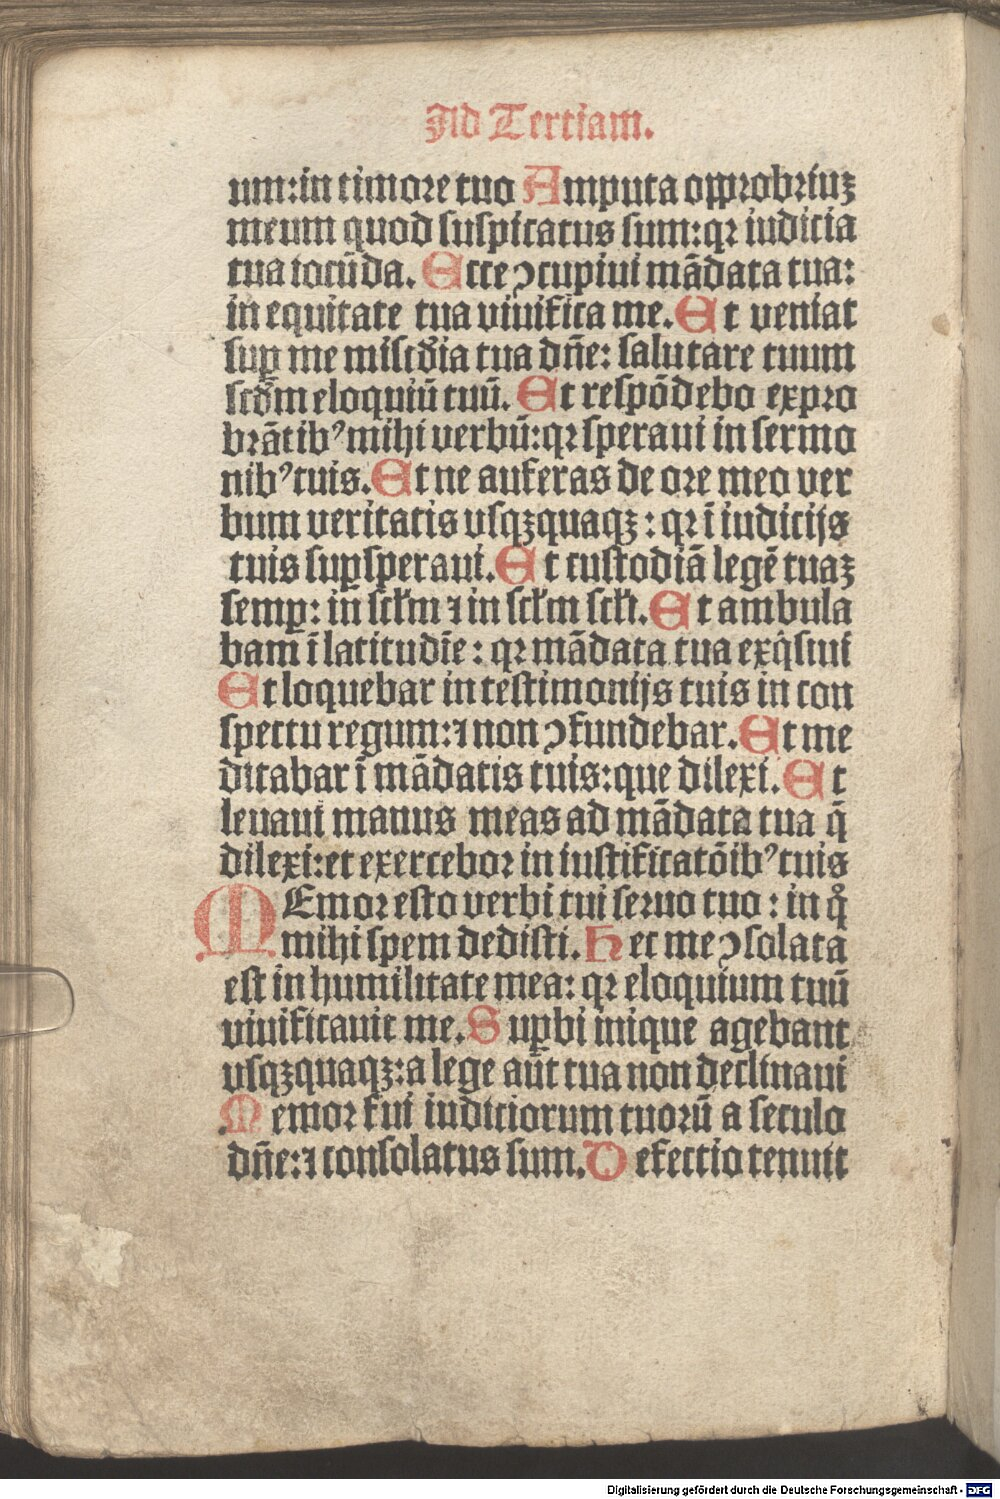 Ad Tertiam.
um:in timore tuo Amputa opprobriuꝫ
meum quod suspicatus sum:qꝛ iudicia
tua iocūda. Ecce ꝯcupiui mādata tua:
in equitate tua viuifica me. Et veniat
suꝑ me miẜcd̄ia tua dn̄e: salutare tuum
scd̄m eloquiū tuū. Et respōdebo expro
brātibꝰ mihi verbū:qꝛ speraui in sermo
nibꝰ tuis. Et ne auferas de ore meo ver
bum veritatis vsqꝫquaqꝫ: qꝛ ī iudicijs
tuis suꝑsperaui. Et custodiā legē tuaꝫ
semꝑ: in scl̄m ⁊ in scl̄m scl̄i. Et ambula
bam ī latitudīe: qꝛ mādata tua exq̇siui
Et loquebar in testimonijs tuis in con
spectu regum:⁊ non ꝯfundebar. Et me
ditabar ī mādatis tuis:que dilexi. Et
leuaui manus meas ad mādata tua q̄
dilexi:et exercebor in iustificatōibꝰ tuis
MEmor esto verbi tui seruo tuo: in qͦ
mihi spem dedisti. Hec me ꝯsolata
est in humilitate mea: qꝛ eloquium tuū
viuificauit me. Suꝑbi inique agebant
vsqꝫquaqꝫ:a lege aūt tua non declinaui
Memor fui iudiciorum tuorū a seculo
dn̄e:⁊ consolatus sum. Defectio tenuit
Digitalisierung gefördert durch die Deutsche Forschungsgemeinschaft - DFG